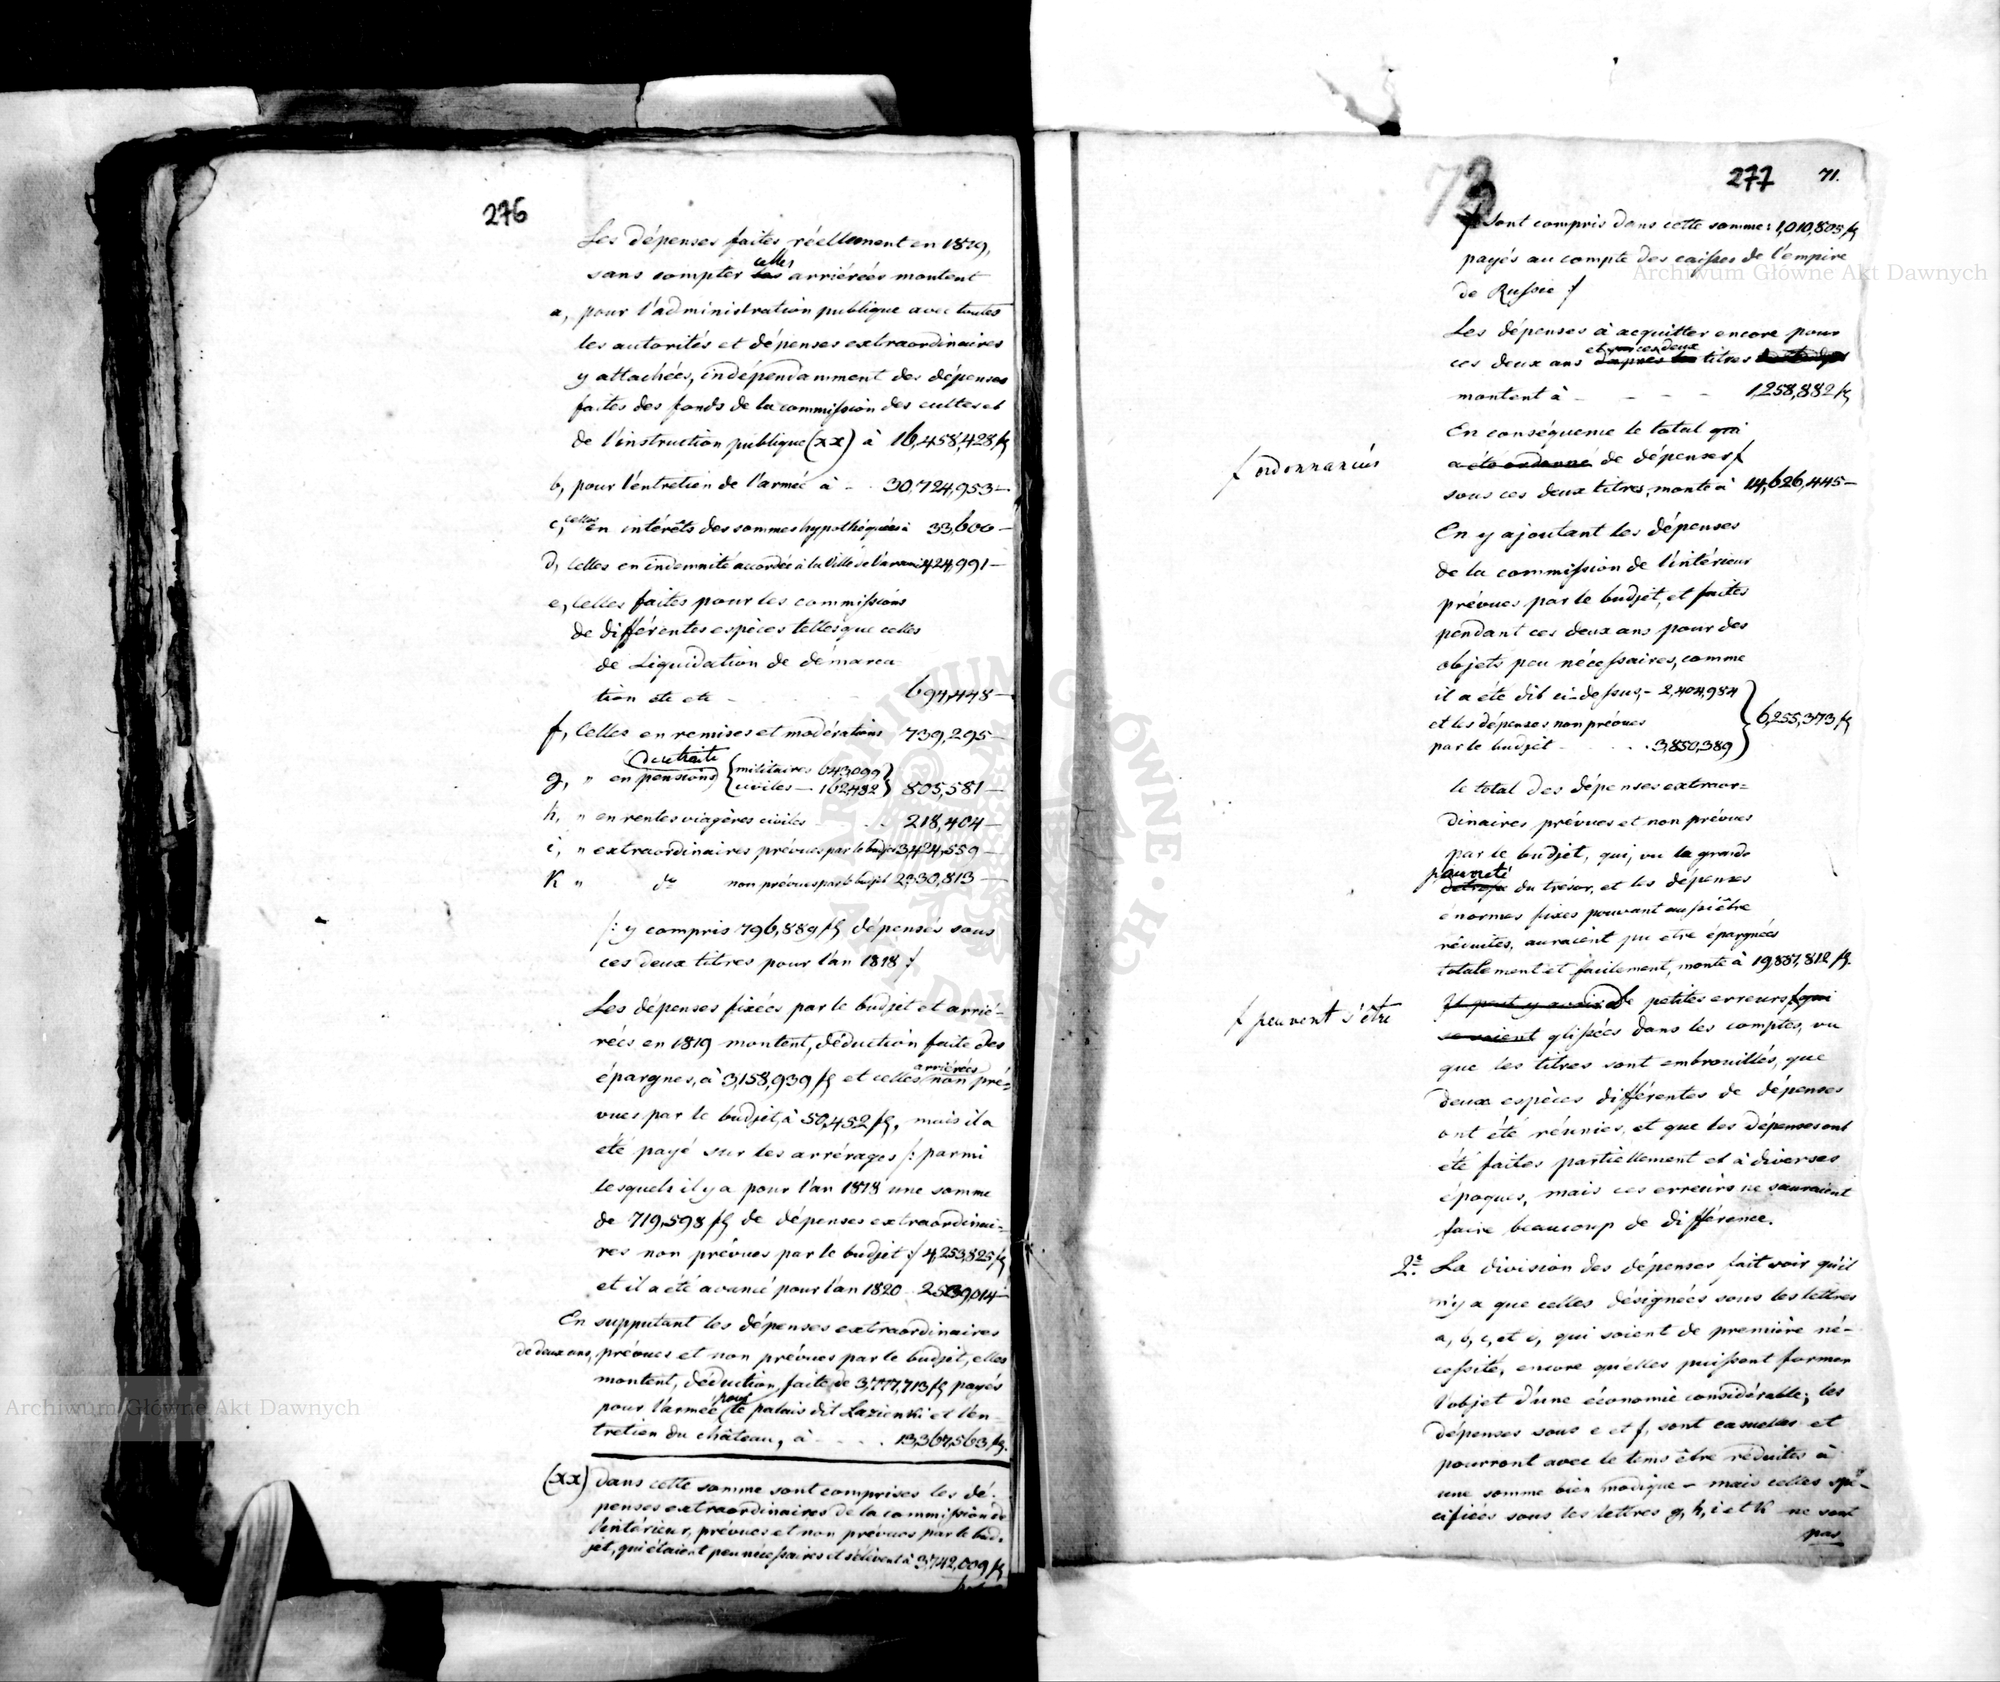 276
Les dépenses faites réellement en 1819,
sans compter celles arriérées montent
a, pour l'administration publique avec toutes
les autorités et dépenses extraordinaires
y attachées, indépendamment des dépenses
faites des fonds de la commission des cultes et
de l'instruction publique (xx) à 16,458,428 fl
b, pour l'entretien de l'armée à - . 30,724,953 —
c, celles en intérêts des sommes hypothéquées à 33,600 —
d, celles en indemnité accordée à la Ville de Varsovie 424,991 —
e, celles faites pour les commissions
de différentes espèces telles que celles
de Liquidation de démarca-
tion etc etc - 694,448 —
f, Celles en remises et modérations 739,295 —
g, " en pensions de retraite { militaires 643,099 } 805,581 —
civiles — 162,482
h, " en rentes viagères civiles - . . 218,404 —
i, " extraordinaires prévues par le budjet 3,424,559 —
K " do non prévues par le budjet 2,230,813 —
/: y compris 796,889 fl dépensés sous
ces deux titres pour l'an 1818 :/
Les dépenses fixées par le budjet et arrié-
rées en 1819 montent, déduction faite des
épargnes, à 3,158,939 fl et celles arriérées non pré-
vues par le budjet, à 50,452 fl, mais il a
été payé sur les arrérages /: parmi
lesquels il y a pour l'an 1818 une somme
de 719,598 fl de dépenses extraordinai-
res non prévues par le budjet :/ 4,253,825 fl
et il a été avancé pour l'an 1820 . 2,539,014 —
En supputant les dépenses extraordinaires
de deux ans, prévues et non prévues par le budjet, elles
montent, déduction faite de 3,777,713 fl payés
pour l'armée pour le palais dit Lazienki et l'en-
tretien du château, à - . . . 13,367,563 fl.
(xx) Dans cette somme sont comprises les dé-
penses extraordinaires de la commission de
l'intérieur, prévues et non prévues par le bud-
jet, qui étaient peu nécessaires et s'élèvent à 3,742,009 fl
277 71.
/: Sont compris dans cette somme : 1,010,805 fl
payés au compte des caisses de l'empire
de Russie :/
Les dépenses à acquitter encore pour
ces deux ans et pour ces deux titres
montent à - - - - 1,258,882 fl
En conséquence le total
ƒ ordonnancées
a été ordonné de dépenses ƒ
sous ces deux titres, monte à 14,626,445 —
En y ajoutant les dépenses
de la commission de l'intérieur
prévues par le budjet, et faites
pendant ces deux ans pour des
objets peu nécessaires, comme
il a été dit ci-dessus, - 2,404,984
et les dépenses non prévues } 6,255,373 fl
par le budjet - . . . . 3,850,389
le total des dépenses extraor=
dinaires prévues et non prévues
par le budjet, qui, vu la grande
pauvreté
du trésor, et les dépenses
énormes fixes pouvant aussi être
réduites, auraient pu etre épargnées
totalement et facilement, monte à 19,887,812 fl.
ƒ peuvent s'être
De petites erreurs ƒ qui
se soient glissées dans les comptes, vu
que les titres sont embrouillés, que
deux espèces différentes de dépenses
ont été réunies, et que les dépenses ont
été faites partiellement et à diverses
époques, mais ces erreurs ne sauraient
faire beaucoup de différence.
2e. La division des dépenses fait voir qu'il
n'y a que celles désignées sous les lettres
a, b, c, et d, qui soient de première né-
cessité, encore qu'elles puissent former
l'objet d'une économie considérable; les
dépenses sous e et f, sont casuelles et
pourront avec le tems être réduites à
une somme bien modique — mais celles spé-
cifiées sous les lettres g, h, i et K ne sont
pas
Archiwum Główne Akt Dawnych
Archiwum Główne Akt Dawnych